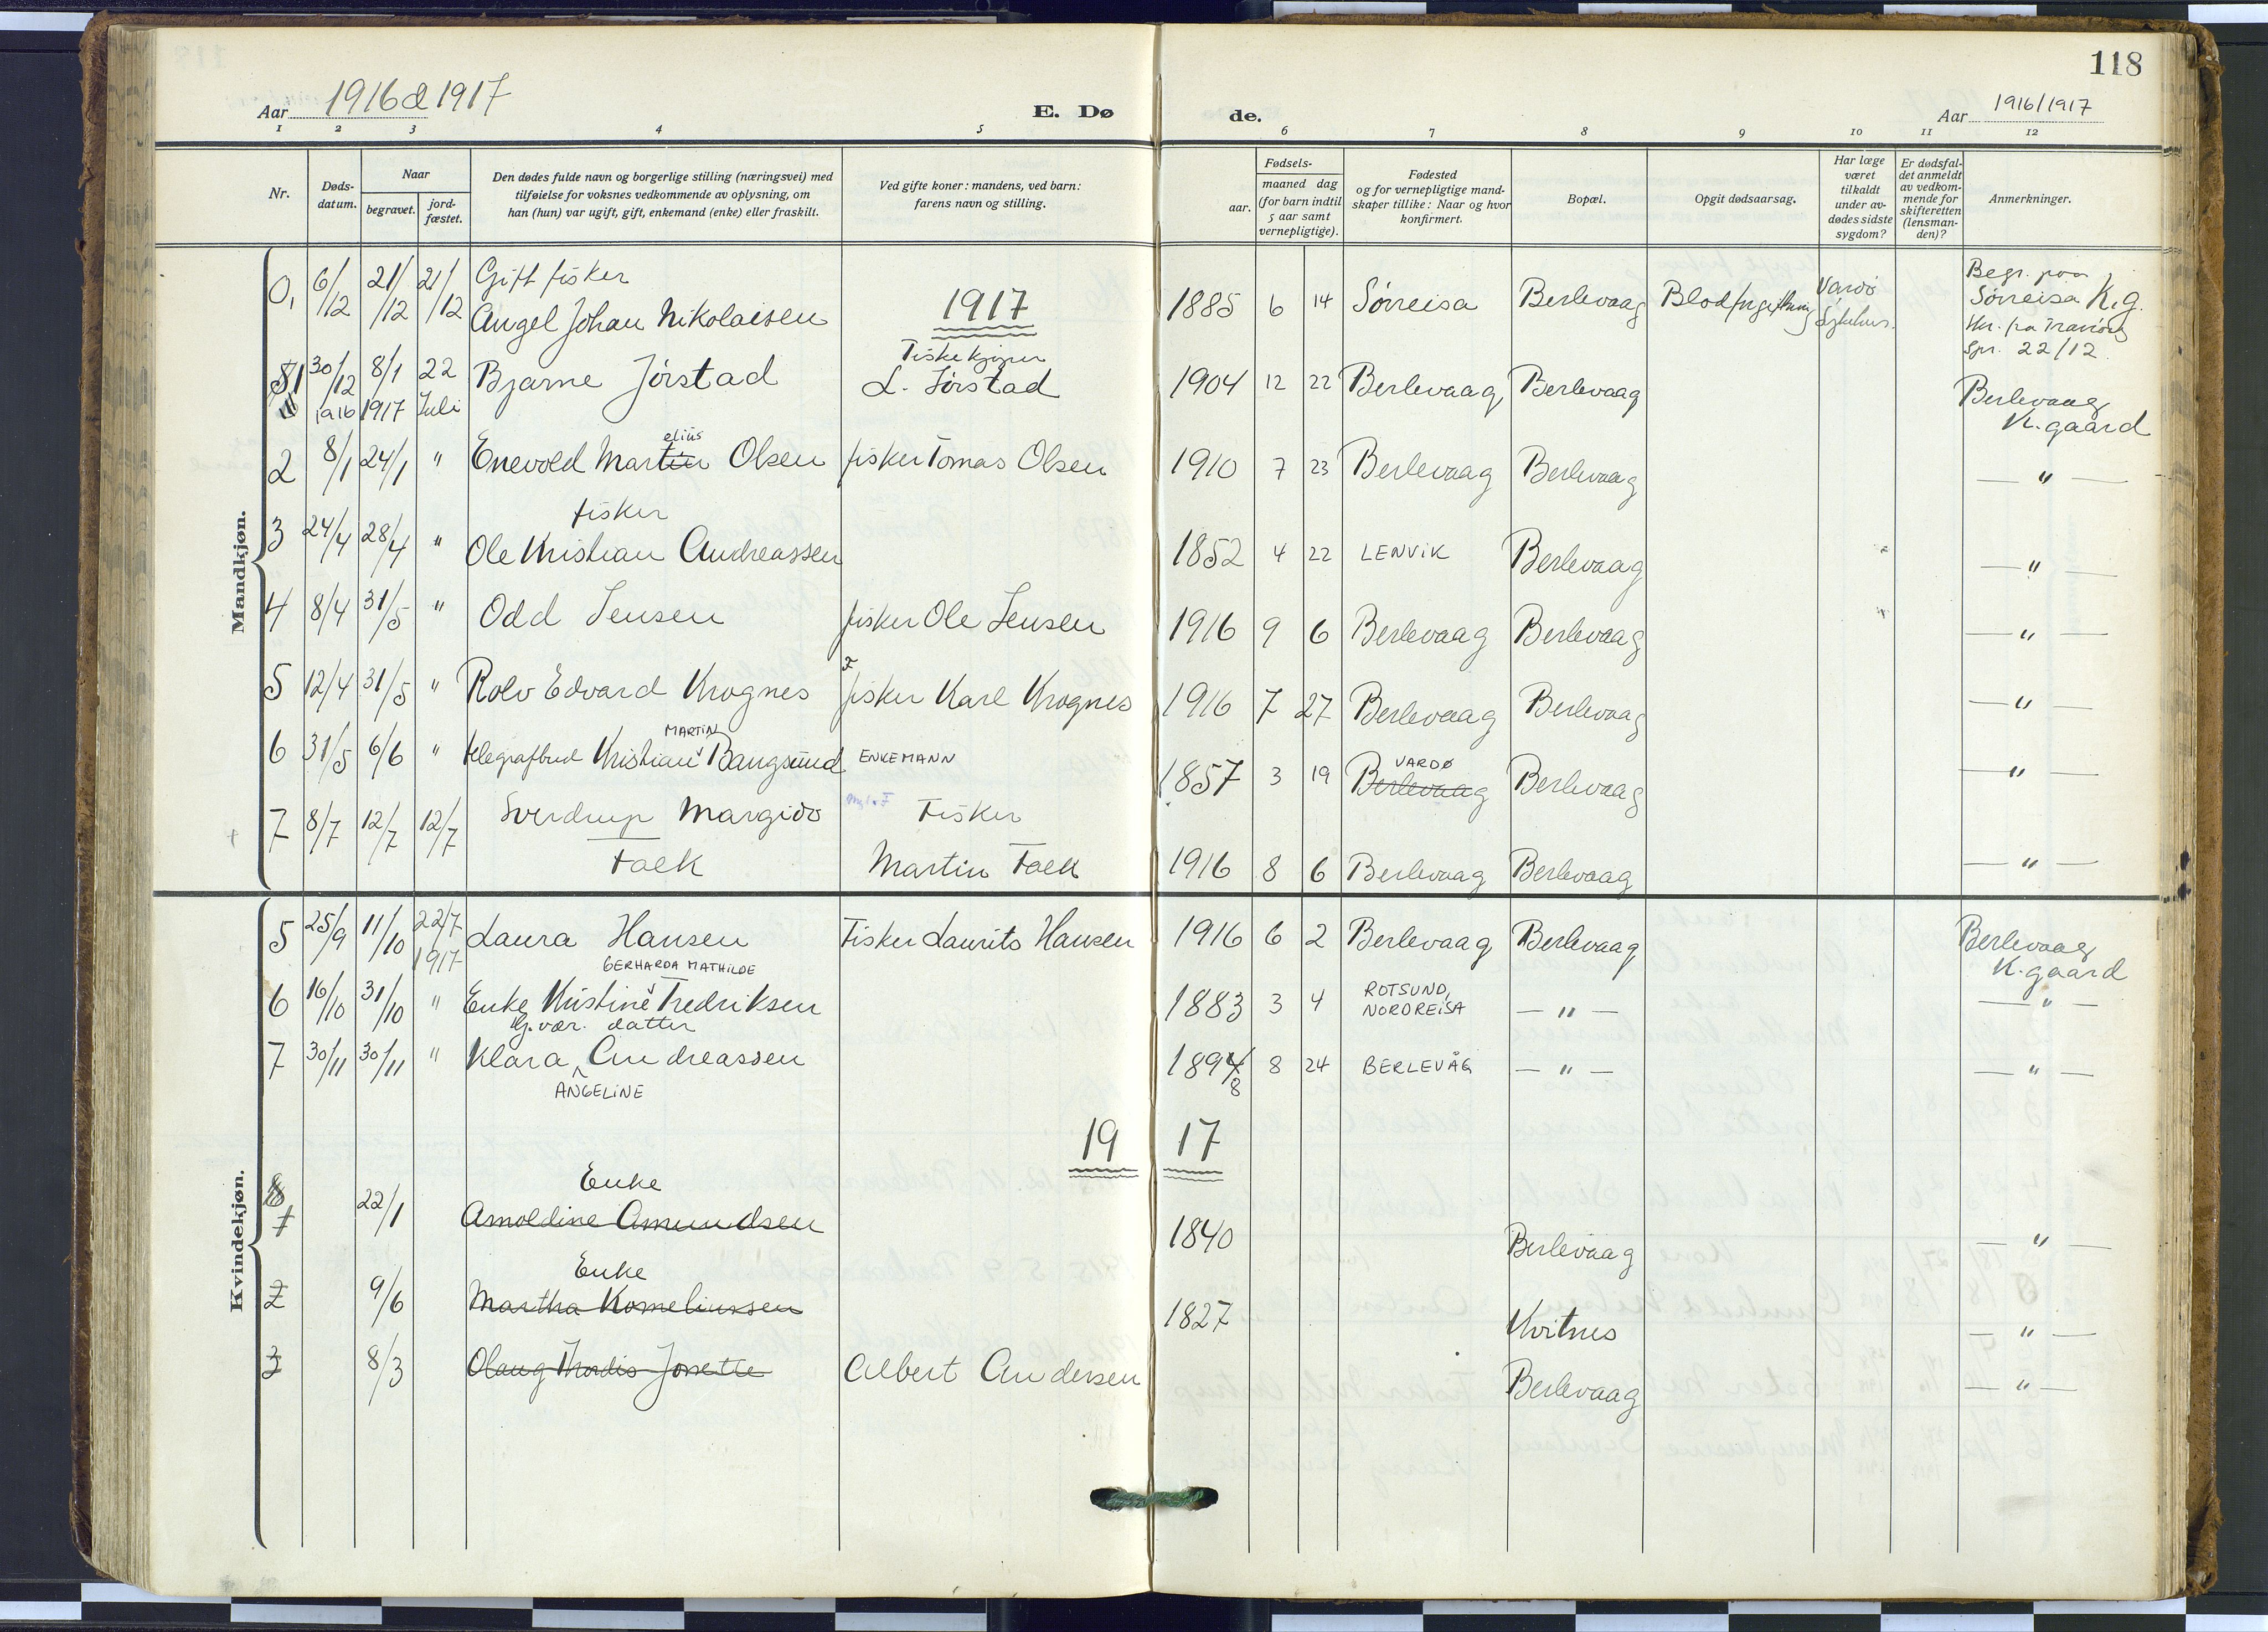 118
Aar 1916 & 1917 E. Døde. Aar 1916/1917
1 2 3 4 5 6 7 8 9 10 11 12
Nr.
Døds-
datum.
Naar
begravet.
jord-
fæstet.
Den dødes fulde navn og borgerlige stilling (næringsvei) med
tilføielse for voksnes vedkommende av oplysning, om
han (hun) var ugift, gift, enkemand (enke) eller fraskilt.
Ved gifte koner: mandens, ved barn:
farens navn og stilling.
Fødsels-
aar.
maaned dag
(for barn indtil
5 aar samt
vernepligtige).
Fødested
og for vernepligtige mand-
skaper tillike: Naar og hvor
konfirmert.
Bopæl.
Opgit dødsaarsag.
Har læge
været
tilkaldt
under av-
dødes sidste
sygdom?
Er dødsfal-
det anmeldt
av vedkom-
mende for
skifteretten
(lensman-
den)?
Anmerkninger.
Mandkjøn.
0, 6/12 21/12 21/12 Gift fisker
Angel Johan Nikolaisen 1917 1885 6 14 Sørreisa Berlevaag Blodforgiftning Vardø
Sykehus.
Begr. paa
Sørreisa K.g.
22/12
1 30/12 1916 8/1 1917 22 Juli Bjarne Jørstad Fiskekjøper
L. Jørstad 1904 12 22 Berlevaag Berlevaag Berlevaag
K. gaard
2 8/1 24/1 " Enevold Martin elius Olsen fisker Tomas Olsen 1910 7 23 Berlevaag Berlevaag — " —
3 24/4 28/4 " fisker
Ole Kristian Andreassen 1852 4 22 LENVIK Berlevaag — " —
4 8/4 31/5 " Odd Jensen fisker Ole Jensen 1916 9 6 Berlevaag Berlevaag — " —
5 12/4 31/5 " Rolv Edvard Krognes F
fisker Karl Krognes 1916 7 27 Berlevaag Berlevaag — " —
6 31/5 6/6 " telegrafbud Kristian MARTIN Bangsund ENKEMANN 1857 3 19 VARDØ
Berlevaag Berlevaag — " —
7 8/7 12/7 12/7 Sverdrup Margido
Falk Fisker
Martin Falk 1916 8 6 Berlevaag Berlevaag — " —
Kvindekjøn.
5 25/9 11/10 22/7 1917 Laura Hansen Fisker Laurits Hansen 1916 6 2 Berlevaag Berlevaag Berlevaag
K. gaard
6 16/10 31/10 " GERHARDA MATHILDE
Enke Kristine Fredriksen 1883 3 4 ROTSUND,
NORDREISA — " — — " —
G.vær. datter
7 30/11 30/11 " Klara Andreassen
ANGELINE 1894 8 8 24 BERLEVÅG — " — — " —
1917
1 22/1 Enke
Arnoldine Amundsen 1840 Berlevaag — " —
2 9/6 Enke
Martha Korneliussen 1827 Kvitnes — " —
3 8/3 Olaug Thordis Josette Albert Andersen Berlevaag — " —